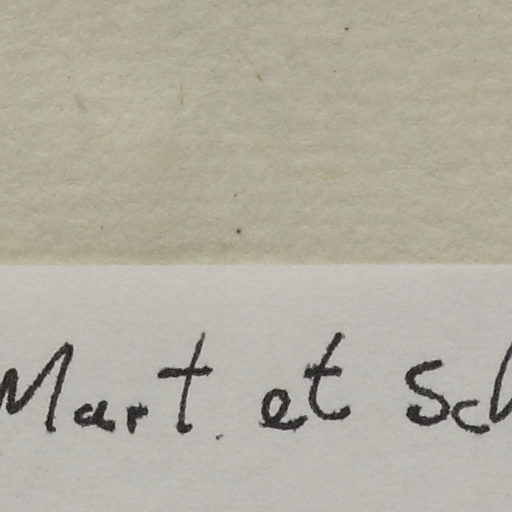 Mart. et Sch